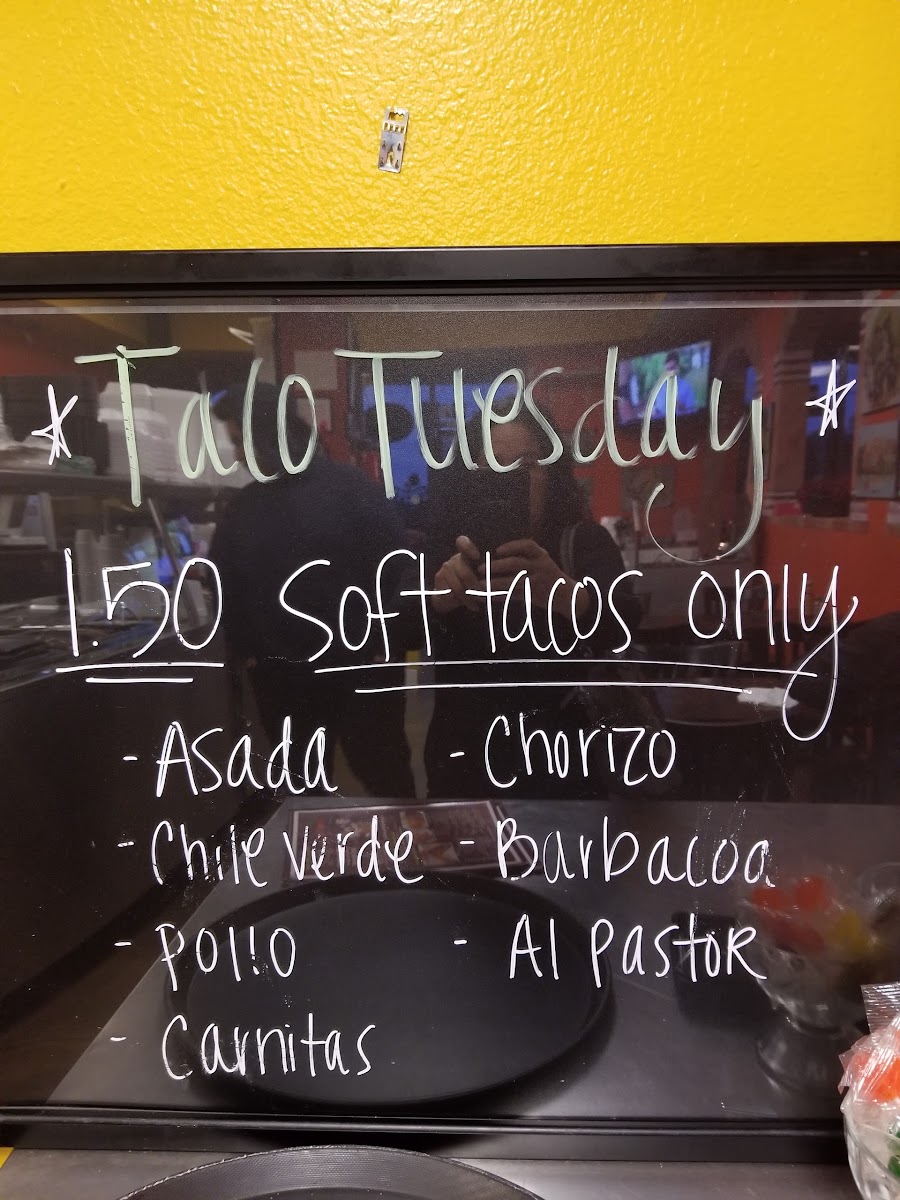 Taco Tuesday
1.50 Soft tacos only
- Asada
- Chile Verde
- Pollo
- Carnitas
- Chorizo
- Barbacoa
- Al Pastor